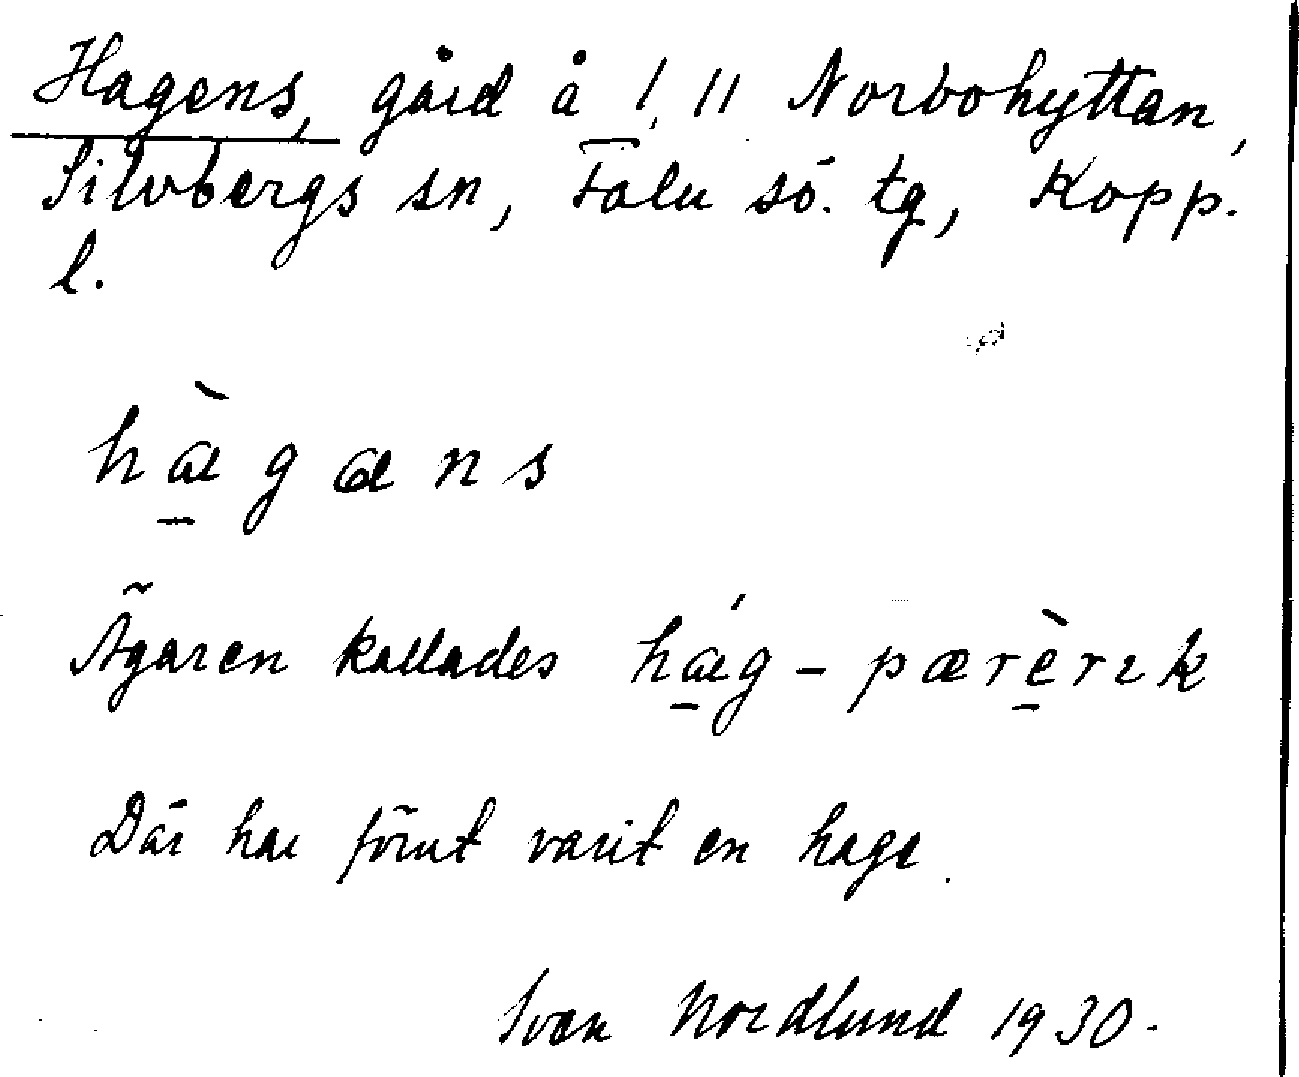 Hagens, gård å 1, 11 Norbohyttan,
Silvbergs sn, Falu sö. tg, Kopp.
l.
hæ̠̀gæns
Ägaren kallades hǽ̠g-pærè̠rɩk
Där har förut varit en hage.
Sven Nordlund 1930.